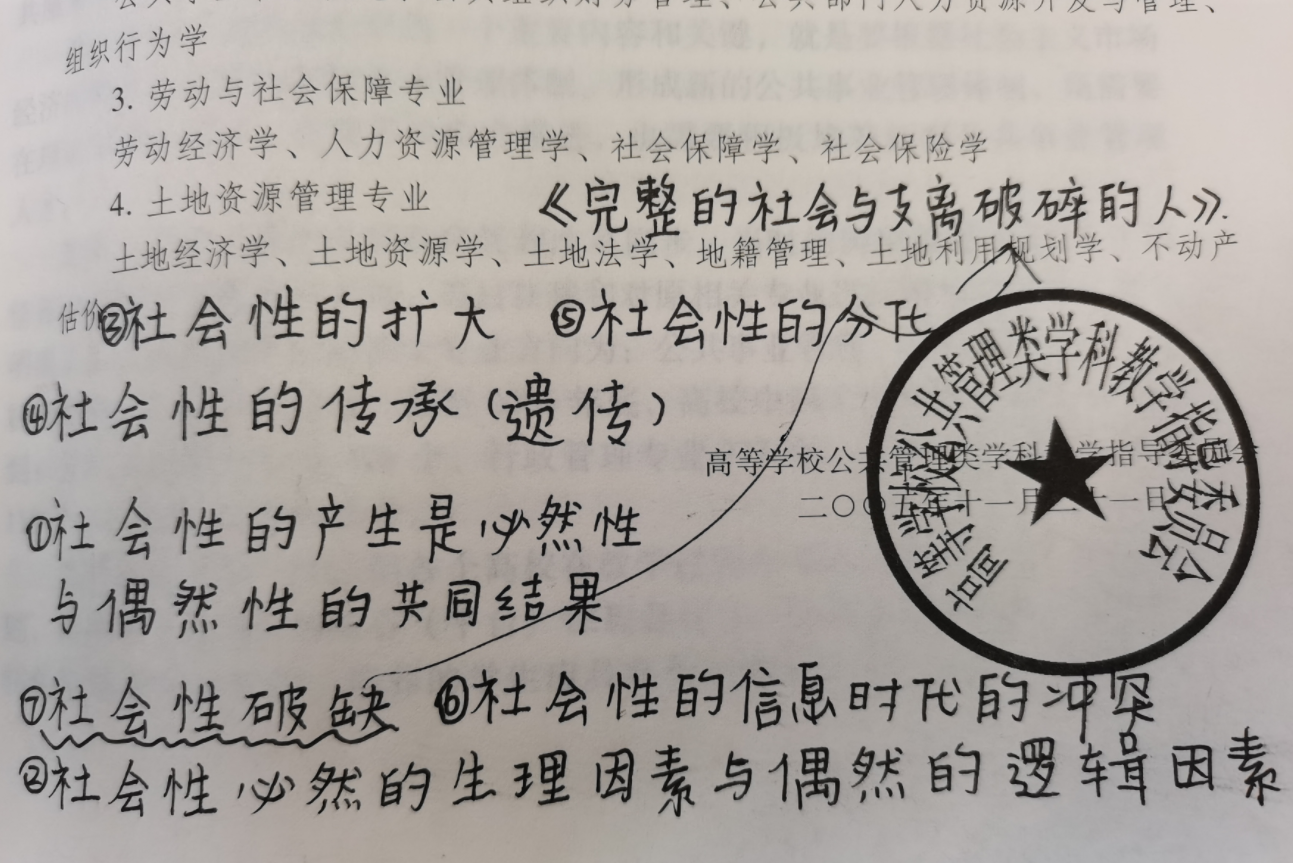 组织行为学
3. 劳动与社会保障专业
劳动经济学、人力资源管理学、社会保障学、社会保险学
4. 土地资源管理专业
《完整的社会与支离破碎的人》.
土地经济学、土地资源学、土地法学、地籍管理、土地利用规划学、不动产
估价
③社会性的扩大 ⑤社会性的分化
④社会性的传承(遗传)
高等学校公共管理类学科教学指导委员会
二〇〇五年十一月二十一日
高等学校公共管理类学科教学指导委员会
①社会性的产生是必然性
与偶然性的共同结果
⑦社会性破缺 ⑥社会性的信息时代的冲突
②社会性必然的生理因素与偶然的逻辑因素